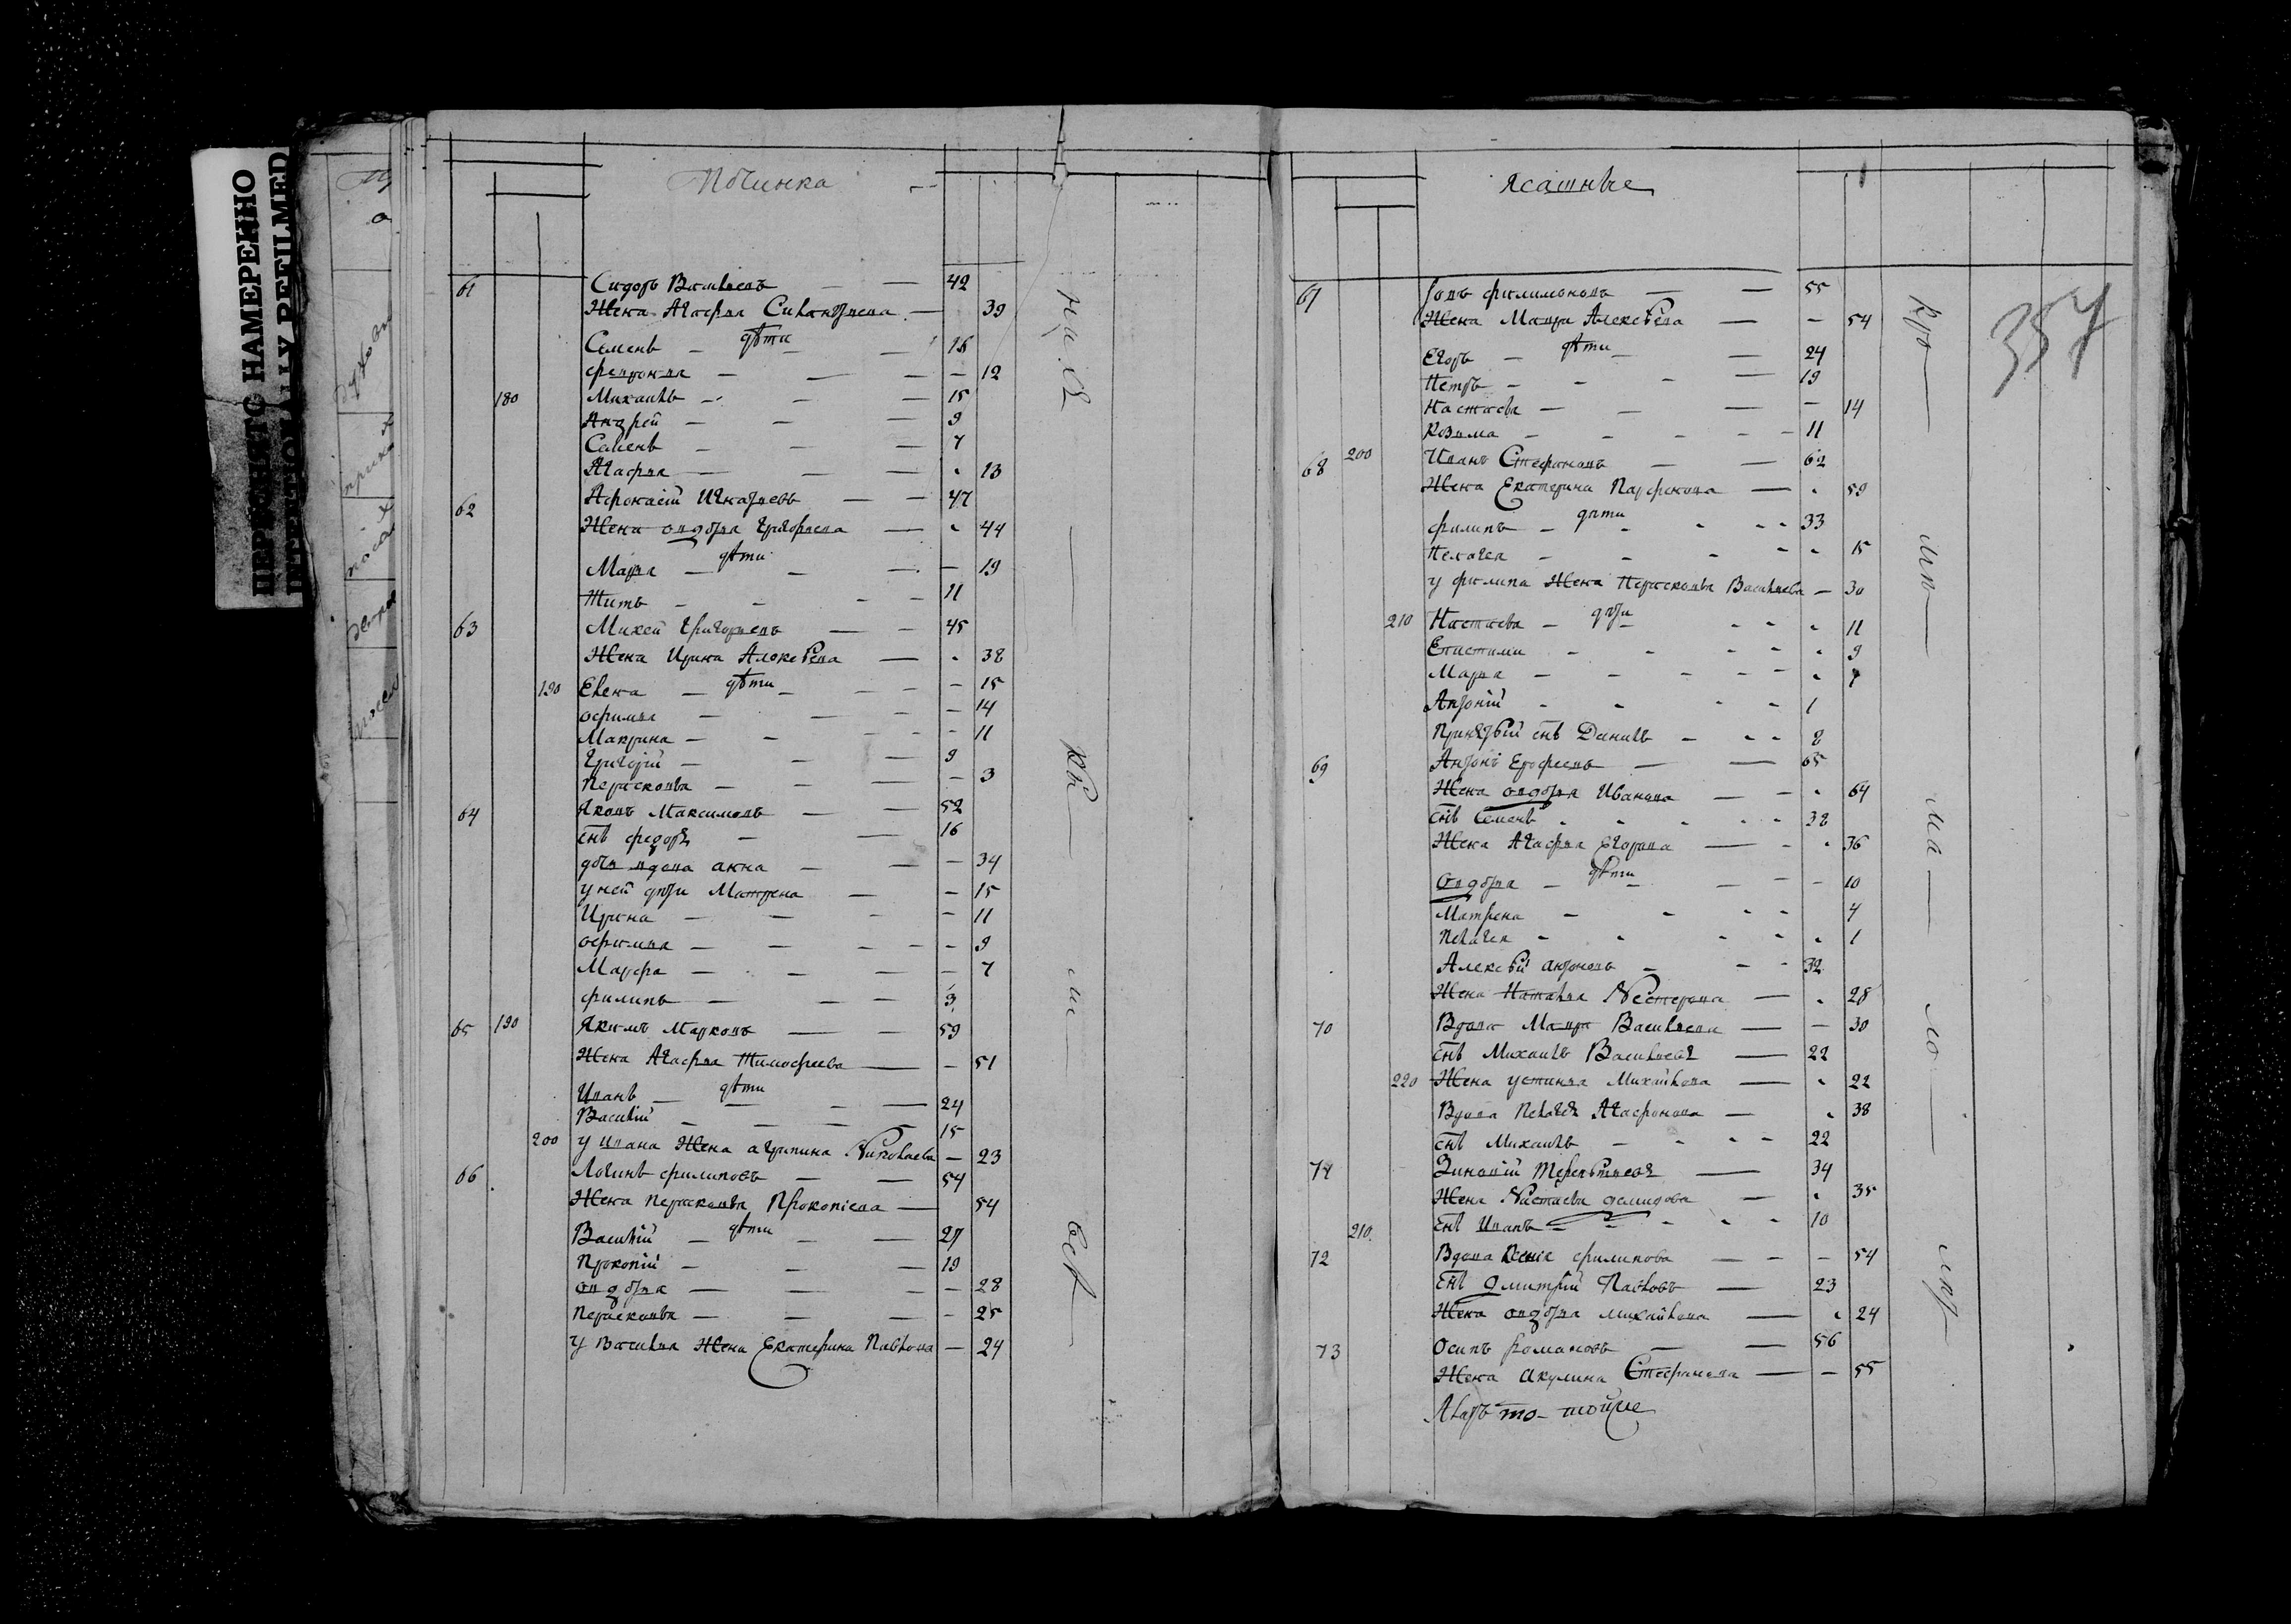 ПЕРЕСНЯТО НАМЕРЕННО
INTENTIONALLY REFILMED
Починка
61 Сидоръ Васильевъ 42
Жена Агафья 39
дѣти
Семенъ 18
Февронья 12
180 Михаилъ 15
Андрей 9
Семенъ 7
Агафья 13
62 Афонасій Игнатьевъ 47
Жена Овдотья Григорьева 44
дѣти
Марья 19
Титъ 11
63 Михей Григорьевъ 45
Жена Ирина Алексѣева 38
190 Елена дѣти 15
Офимья 14
Маврина 11
Григорій 9
Перасковья 3
64 Яковъ Максимовъ 52
снъ Федоръ 16
дочь вдова Анна 34
у ней дѣти Матрена 15
Ирина 11
Офимья 9
Марфа 7
Филипъ 3
65 190 Якимъ Марковъ 59
Жена Агафья Тимофеева 51
дѣти
Иванъ 24
Василій 15
200 у Ивана Жена Агрипина Николаева 23
66 Логинъ Филиповъ 54
Жена Перасковья Прокопіева 54
Василій дѣти 27
Прокопій 19
Овдотья 28
Перасковья 25
у Василья Жена Екатерина Павлова 24
Ясашные
357
67 Іовъ Филимоновъ 55
Жена Мавра Алексѣева 54
Егоръ дѣти 24
Петръ 19
Настасья 14
Козьма 11
68 200 Иванъ Стефановъ 62
Жена Екатерина Парфенова 59
Филипъ дѣти 33
Пелагея 15
у Филипа Жена Перасковья Васильева 30
210 Настасья дѣти 11
Епистимия 9
Марья 7
Антоній 1
Принятый снъ Данилъ 8
69 Антонъ Ерофеевъ 65
Жена Овдотья Иванова 64
снъ Семенъ 38
Жена Агафья Егорова 36
дѣти
Овдотья 10
Матрена 4
Пелагея 1
Алексѣй Антоновъ 32
Жена Наталья Нестерова 28
70 Вдова Мавра Васильева 30
снъ Михаилъ Васильевъ 22
220 Жена Устинья Михайлова 22
Вдова Пелагея Агафонова 38
снъ Михаилъ 22
71 Зиновій Терентьевъ 34
Жена Настасья Демидова 35
210 снъ Иванъ 10
72 Вдова Ксения Филипова 54
снъ Дмитрій Павловъ 23
Жена Овдотья Михайлова 24
73 Осипъ Романовъ 56
Жена Акулина Стефанова 55